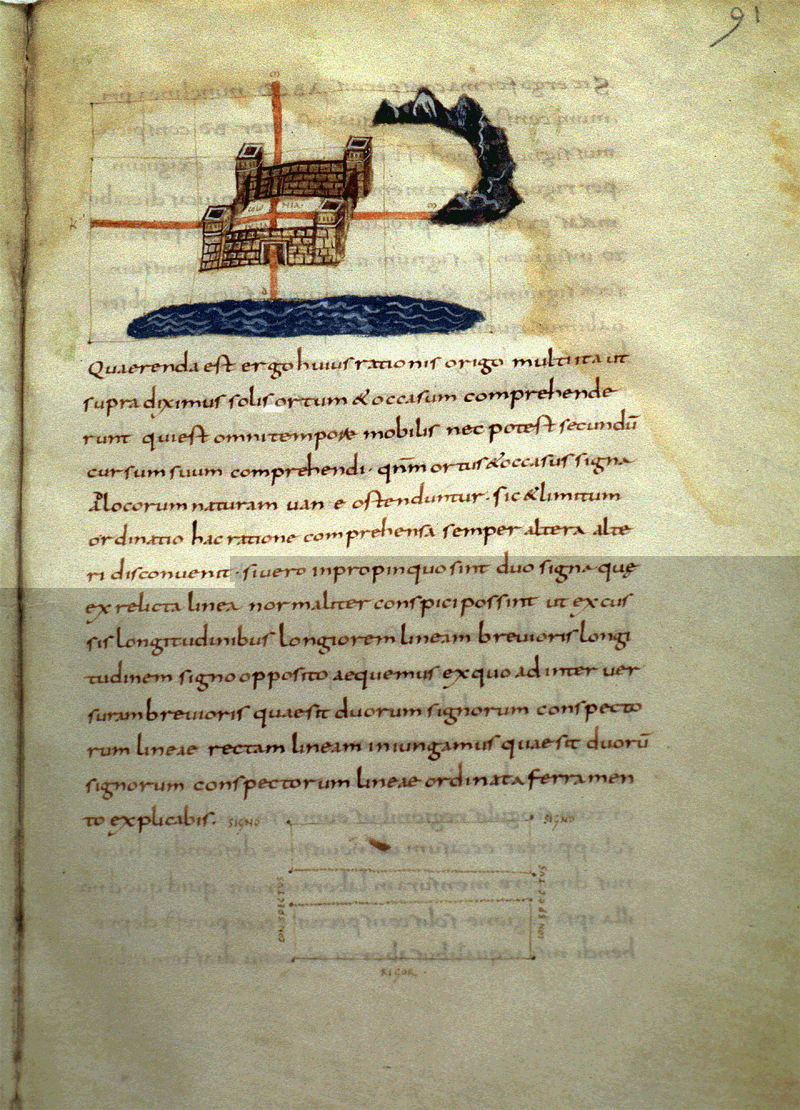 91
HIA.
Quaerenda est ergo huius rationis origo multi ita ut
supra diximus solis ortum & occasum comprehende
runt qui est omni tempore mobilis nec potest secundū
cursum suum comprehendi · qnm ortus & occasus signa
A locorum naturam uari e ostenduntur · sic & limitum
ordinatio hac ratione comprehensa semper altera alte
ri disconuenit · si uero in propinquo sint duo signa quę
ex relicta linea normaliter conspici possint ut ex cus
sis longitudinibus longiorem lineam breuioris longi
tudinem signo opposito aequemus ex quo ad inter uer
suram breuioris quaesit duorum signorum conspecto
rum lineae rectam lineam iniungamus quae sit duorū
signorum conspectorum lineae ordinata ferramen
to explicabis. SIGNO SIGNO
CONSPECTUS CONSPECTUS
RIGOR.